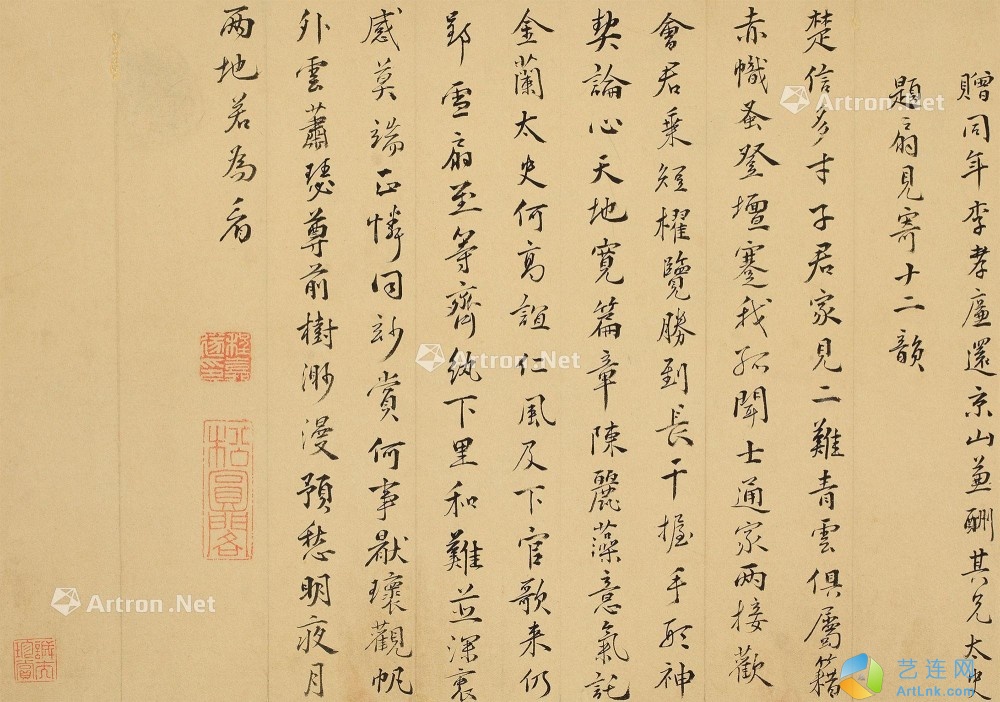 贈同年李孝廉還京山兼酬其兄太史
題扇見寄十二韻
楚信多才子君家見二難青雲俱屬籍
赤幟蚤登壇蹇我孤聞士通家兩接歡
會君乘短櫂覽勝到長干握手形神
契論心天地寬篇章陳麗藻意氣託
金蘭太史何高誼仁風及下官歌来仍
郢雪扇至等齊紈下里和難並深衷
感莫端正憐同紗賞何事厭瓌觀帆
外雲蕭瑟尊前樹渺漫預愁明夜月
兩地若為看
松圓閣
Artron.Net
Artron.Net
Artron.Net
Artron.Net
艺连网
ArtLnk.com